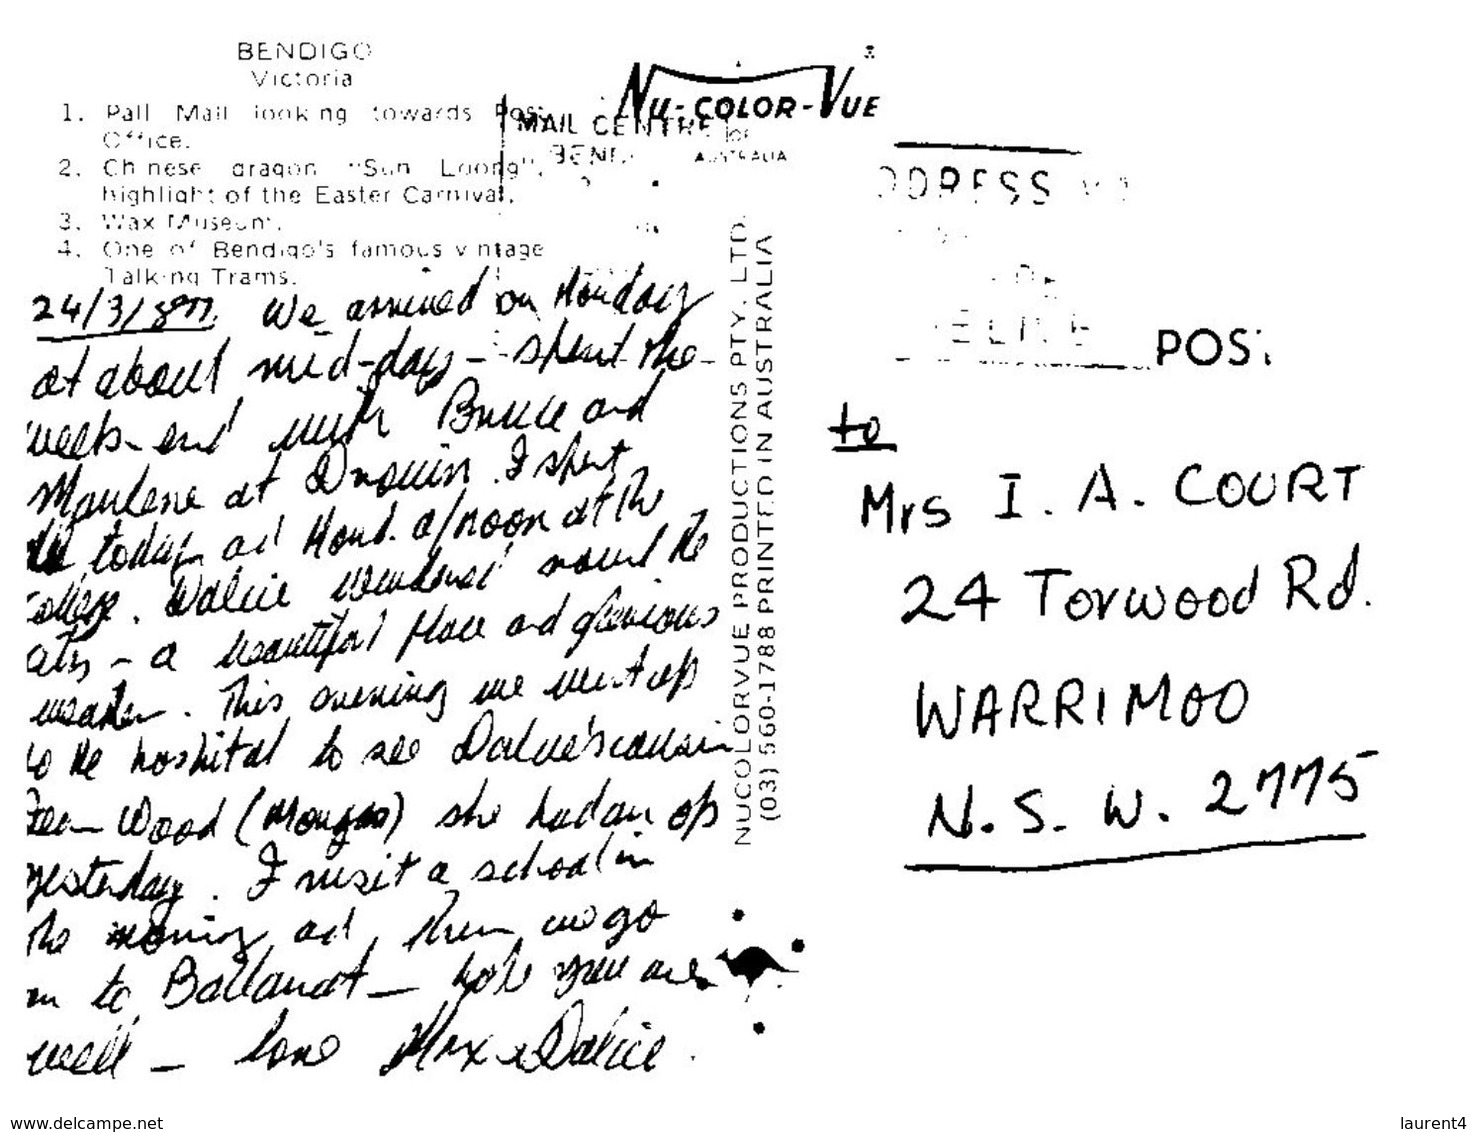 BENDIGO
Victoria
1. Pall Mall looking towards Post
Office.
2. Chinese dragon "Sun Loong",
highlight of the Easter Carnival.
3. Wax Museum.
4. One of Bendigo's famous vintage
Talking Trams.
NU-COLOR-VUE
MAIL CENTRE
BEND
AUSTRALIA
24/3/87. We arrived on Monday
at about mid-day - spent the
week-end with Bruce and
Marlene at Drouin. I spent
today ad Mond. a/noon at the
College. Dalcie wandered round the
city - a beautiful place and glorious
weather. This evening we went up
to the hospital to see Dalcie's cousin
Wood (Mongas) she had an op
yesterday. I visit a school in
the morning ad then we go
on to Ballarat - hope you are
well - love Max & Dalcie.
NUCOLORVUE PRODUCTIONS PTY. LTD.
(03) 560-1788 PRINTED IN AUSTRALIA
POS
to
Mrs I. A. COURT
24 Torwood Rd.
WARRIMOO
N.S.W. 2775
www.delcampe.net
laurent4